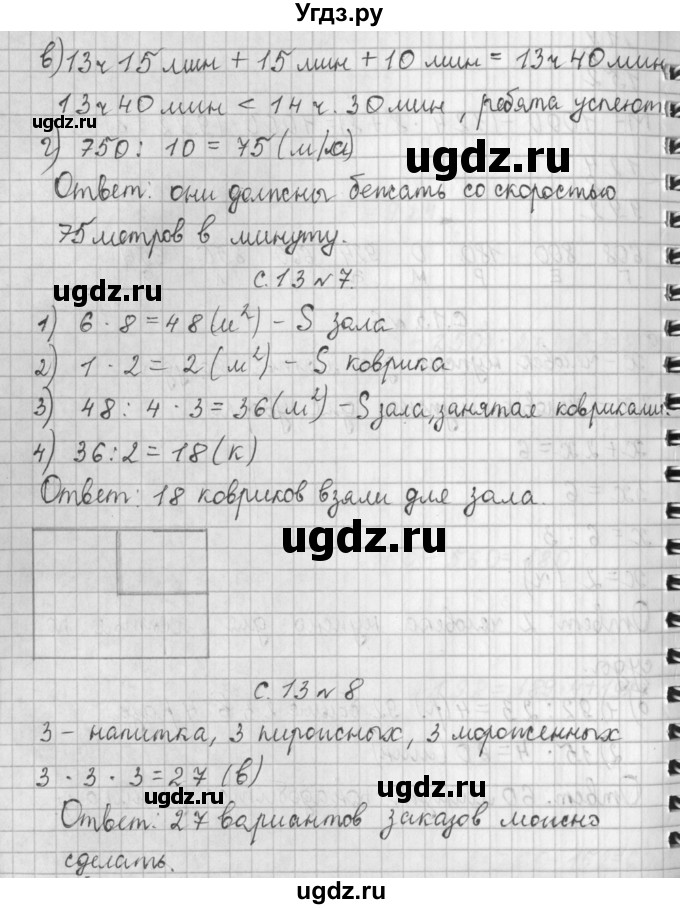 Угдз.ру
в) 13ч 15 мин + 15 мин + 10 мин = 13ч 40 мин
13ч 40 мин < 14 ч. 30 мин, ребята успеют
ugdz.ru
ugdz.ru
г) 750 : 10 = 75 (м/м)
Ответ: они должны бежать со скоростью
75 метров в минуту.
с. 13 № 7.
ugdz.ru
1) 6 · 8 = 48 (м²) - S зала
2) 1 · 2 = 2 (м²) - S коврика
ugdz.ru
3) 48 : 4 · 3 = 36 (м²) - S зала, занятая ковриками.
4) 36 : 2 = 18 (к)
Ответ: 18 ковриков взяли для зала.
ugdz.ru
с. 13 № 8
3 - напитка, 3 пирожных, 3 мороженных
3 · 3 · 3 = 27 (в)
ugdz.ru
Ответ: 27 вариантов заказов можно
сделать.
ugdz.ru
ugdz.ru